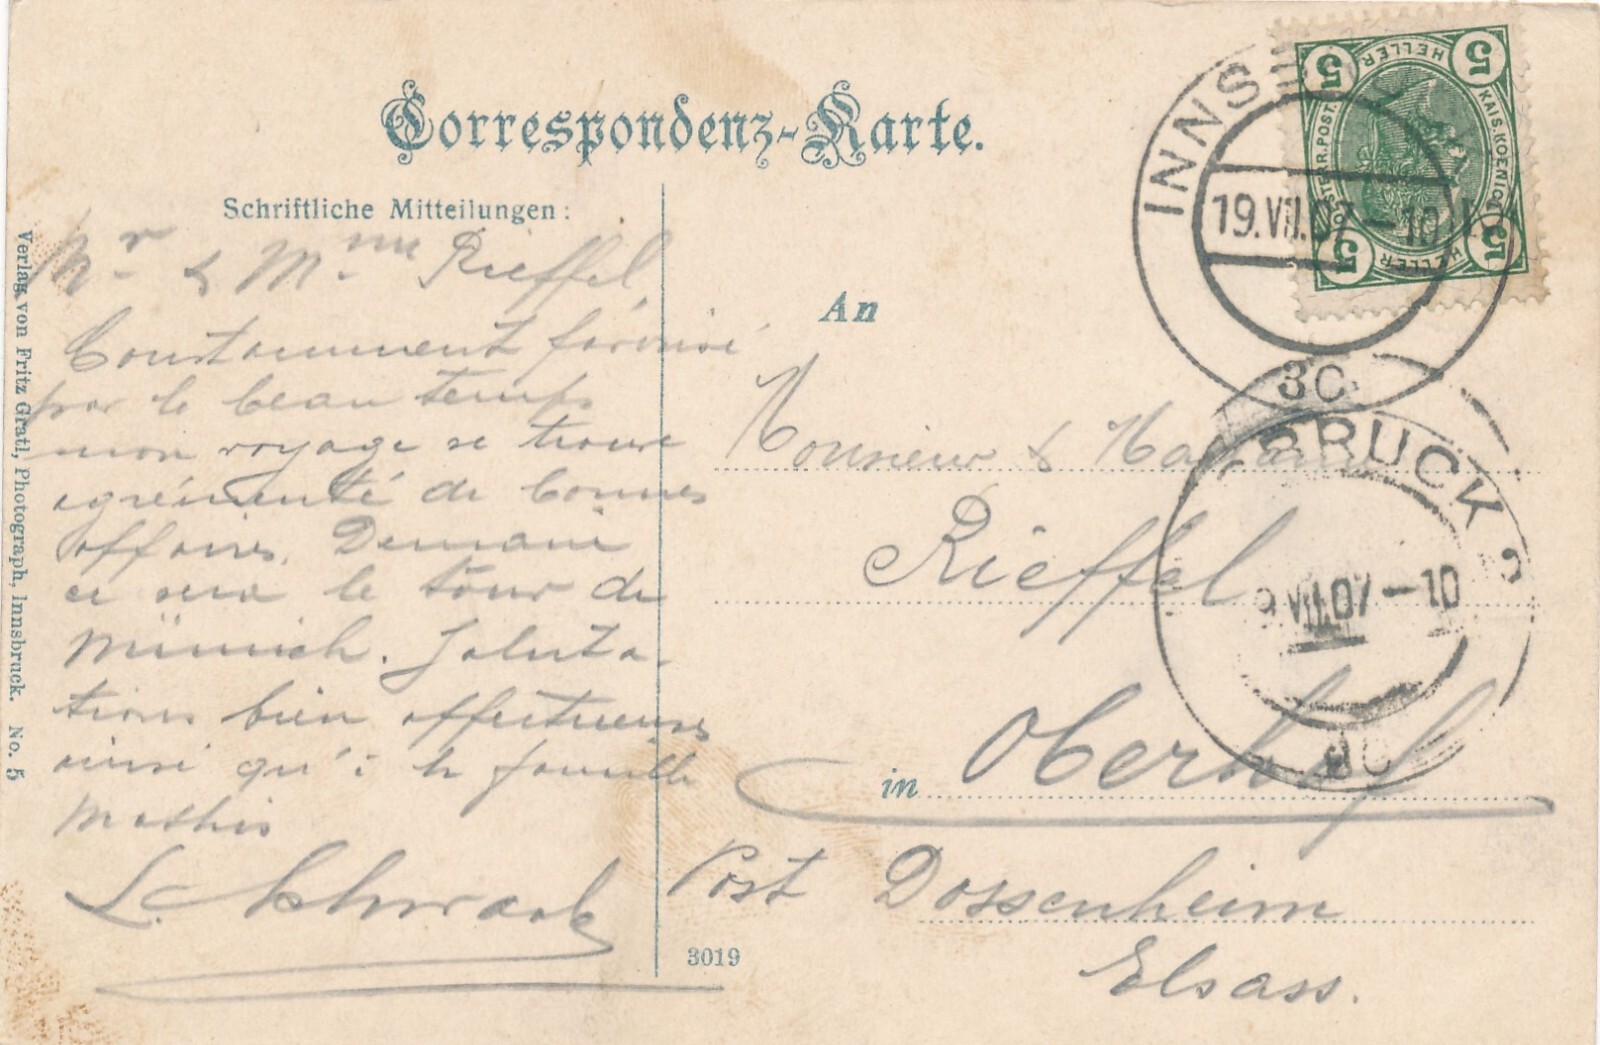 Correspondenz-Karte.
Schriftliche Mitteilungen:
Mr. & M.me Rieffel
Constamment favorisé
par le beau temps
mon voyage se trouve
agrémenté de bonnes
affaires. Demain
ce sera le tour de
Münich. Saluta-
tions bien affectueuses
ainsi qu'à la famille
Mathis
L. Schwack
Verlag von Fritz Gratl, Photograph, Innsbruck. No. 5
3019
An
Monsieur & Madame
Rieffel
in Oberhof
Post Dossenheim
Elsass.
5 HELLER 5
KAIS. KOENIGL.
OESTERR. POST.
5 HELLER 5
INNSBRUCK
19.VII.07-10
3C
BRUCK 2
9.VII.07-10
3C